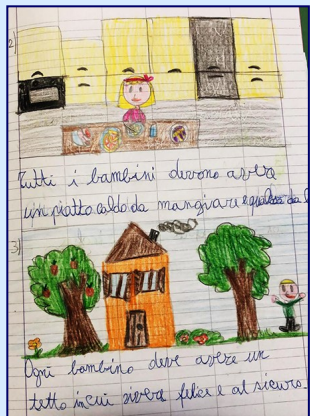 2)
Tutti i bambini devono avere
un piatto caldo da mangiare e qualcosa da
3)
Ogni bambino deve avere un
tetto in cui vivere felice e al sicuro.